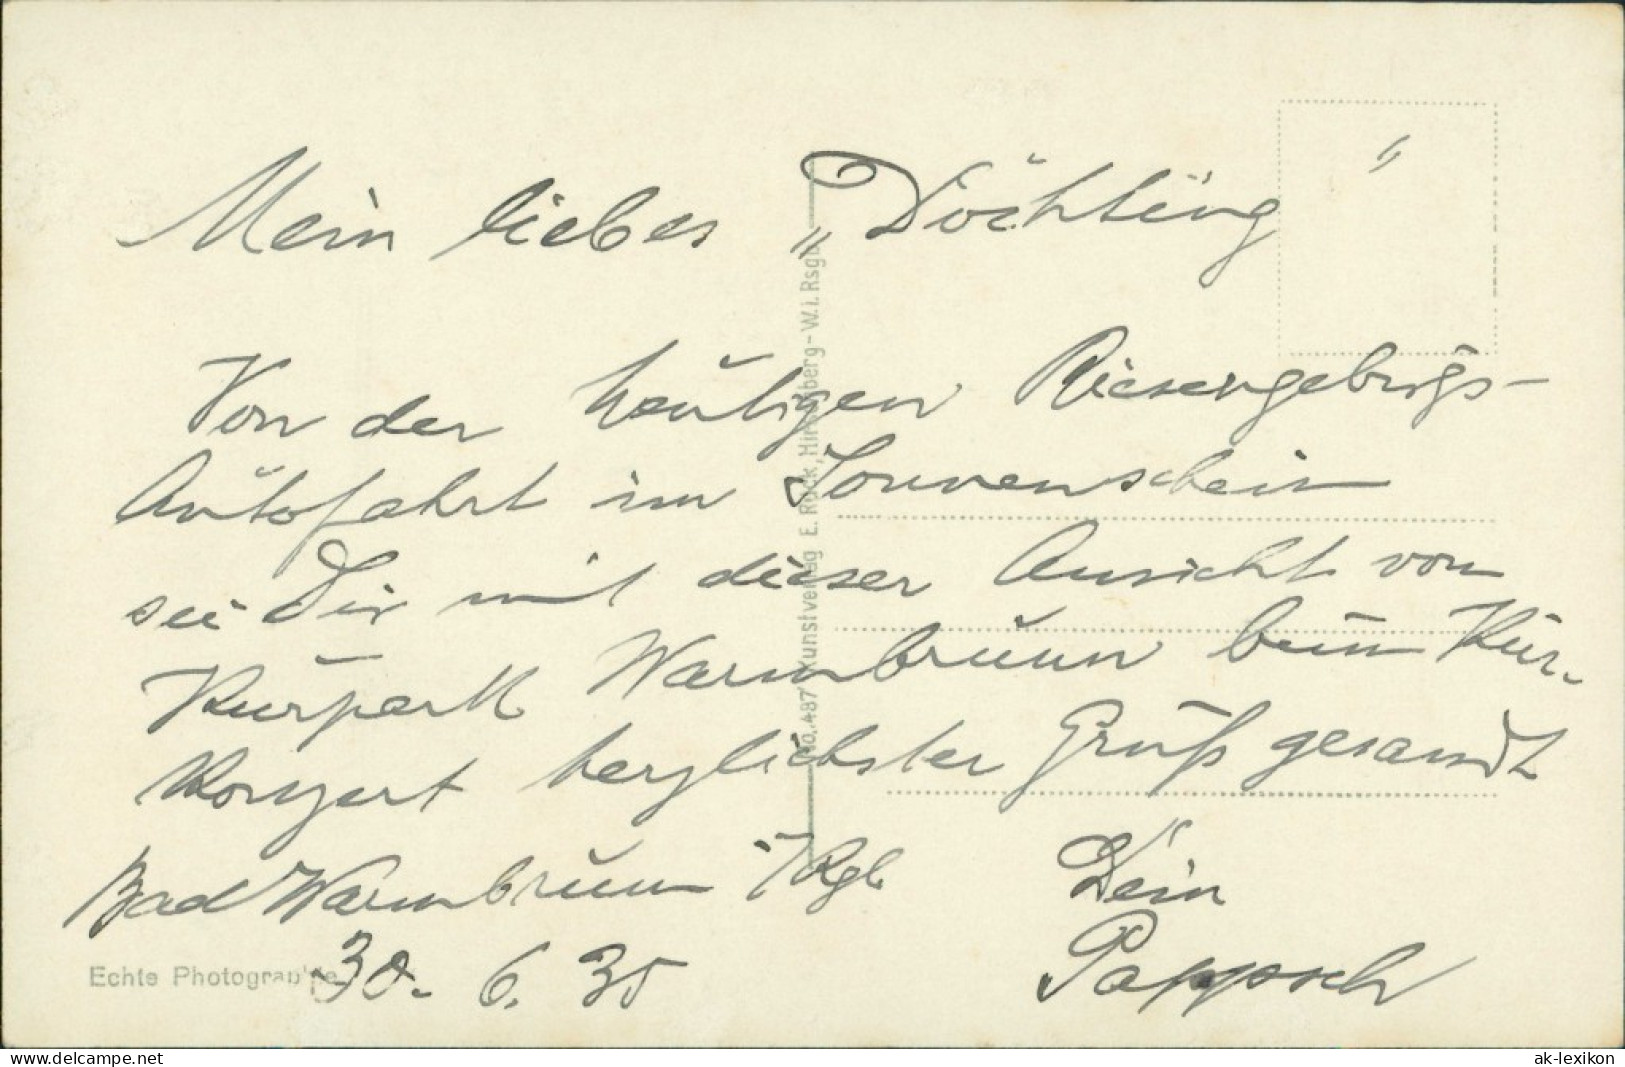 Mein liebes „Döchting"
Von der heutigen Riesengebirgs-
Autofahrt im Sonnenschein
sei Dir mit dieser Ansicht von
Kurpark Warmbrunn beim Kur-
Konzert herzlichster Gruß gesandt
Bad Warmbrunn i/Rgb.
30. 6. 35
Dein
Pappsch
Echte Photographie
No. 487 Kunstverlag E. Rück, Hirschberg-W. i. Rsgb.
www.delcampe.net
ak-lexikon